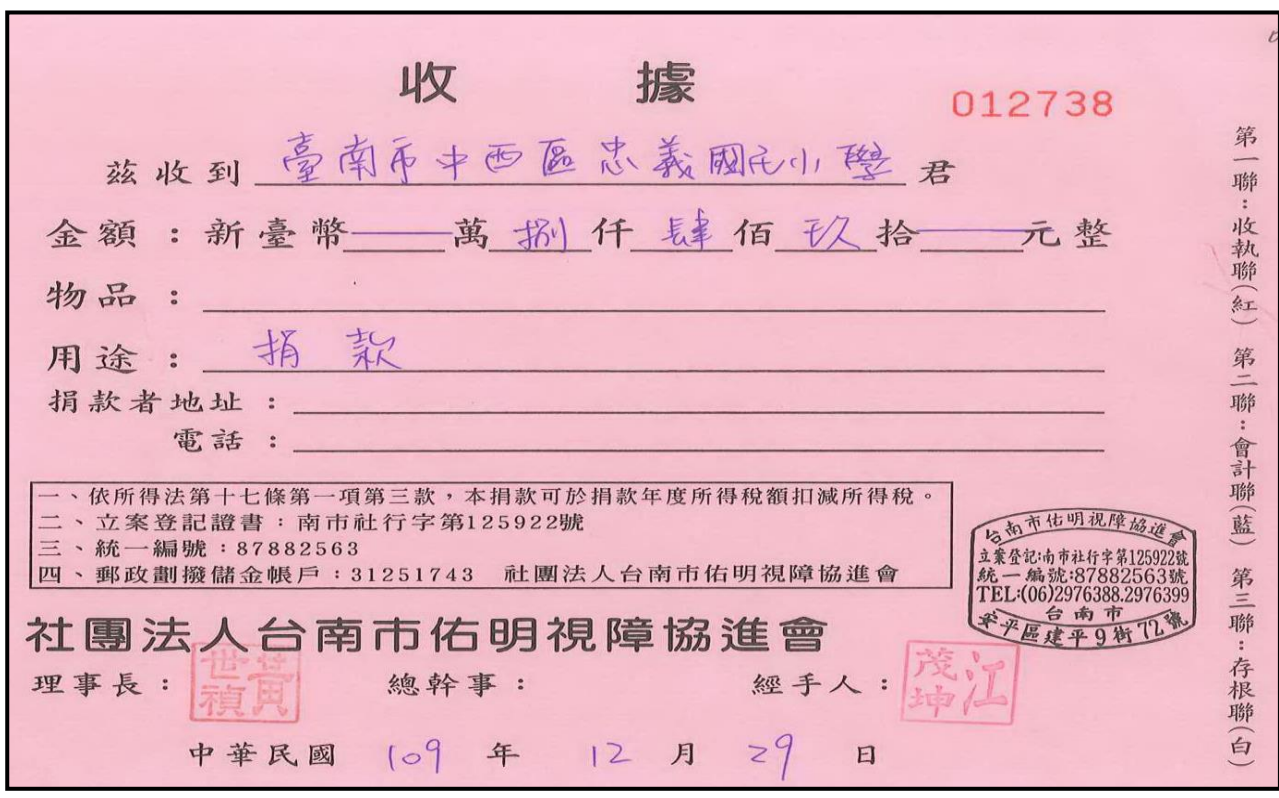 收據
012738
茲收到 臺南市中西區忠義國民小學 君
金額：新臺幣 — 萬 捌 仟 肆 佰 玖 拾 — 元整
物品：
用途： 捐 款
捐款者地址：
電話：
一、依所得法第十七條第一項第三款，本捐款可於捐款年度所得稅額扣減所得稅。
二、立案登記證書：南市社行字第125922號
三、統一編號：87882563
四、郵政劃撥儲金帳戶：31251743 社團法人台南市佑明視障協進會
台南市佑明視障協進會
立案登記:南市社行字第125922號
統一編號:87882563號
TEL:(06)2976388.2976399
台南市
安平區建平9街72號
社團法人台南市佑明視障協進會
理事長： 黃世禎
總幹事：
經手人： 江茂坤
中華民國 109 年 12 月 29 日
第一聯：收執聯(紅) 第二聯：會計聯(藍) 第三聯：存根聯(白)